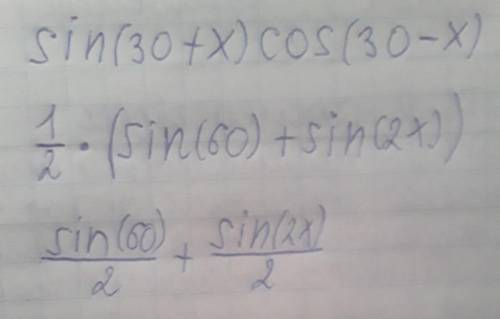 sin(30+x)cos(30-x)
1/2 • (sin(60) + sin(2x))
sin(60)/2 + sin(2x)/2